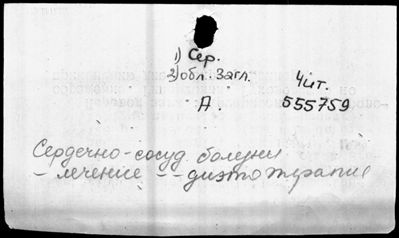 1) Сер.
2) обл. Загл.
Чит.
А.
555759
Сердечно-сосуд. болезни
- лечение -- диэтотерапия